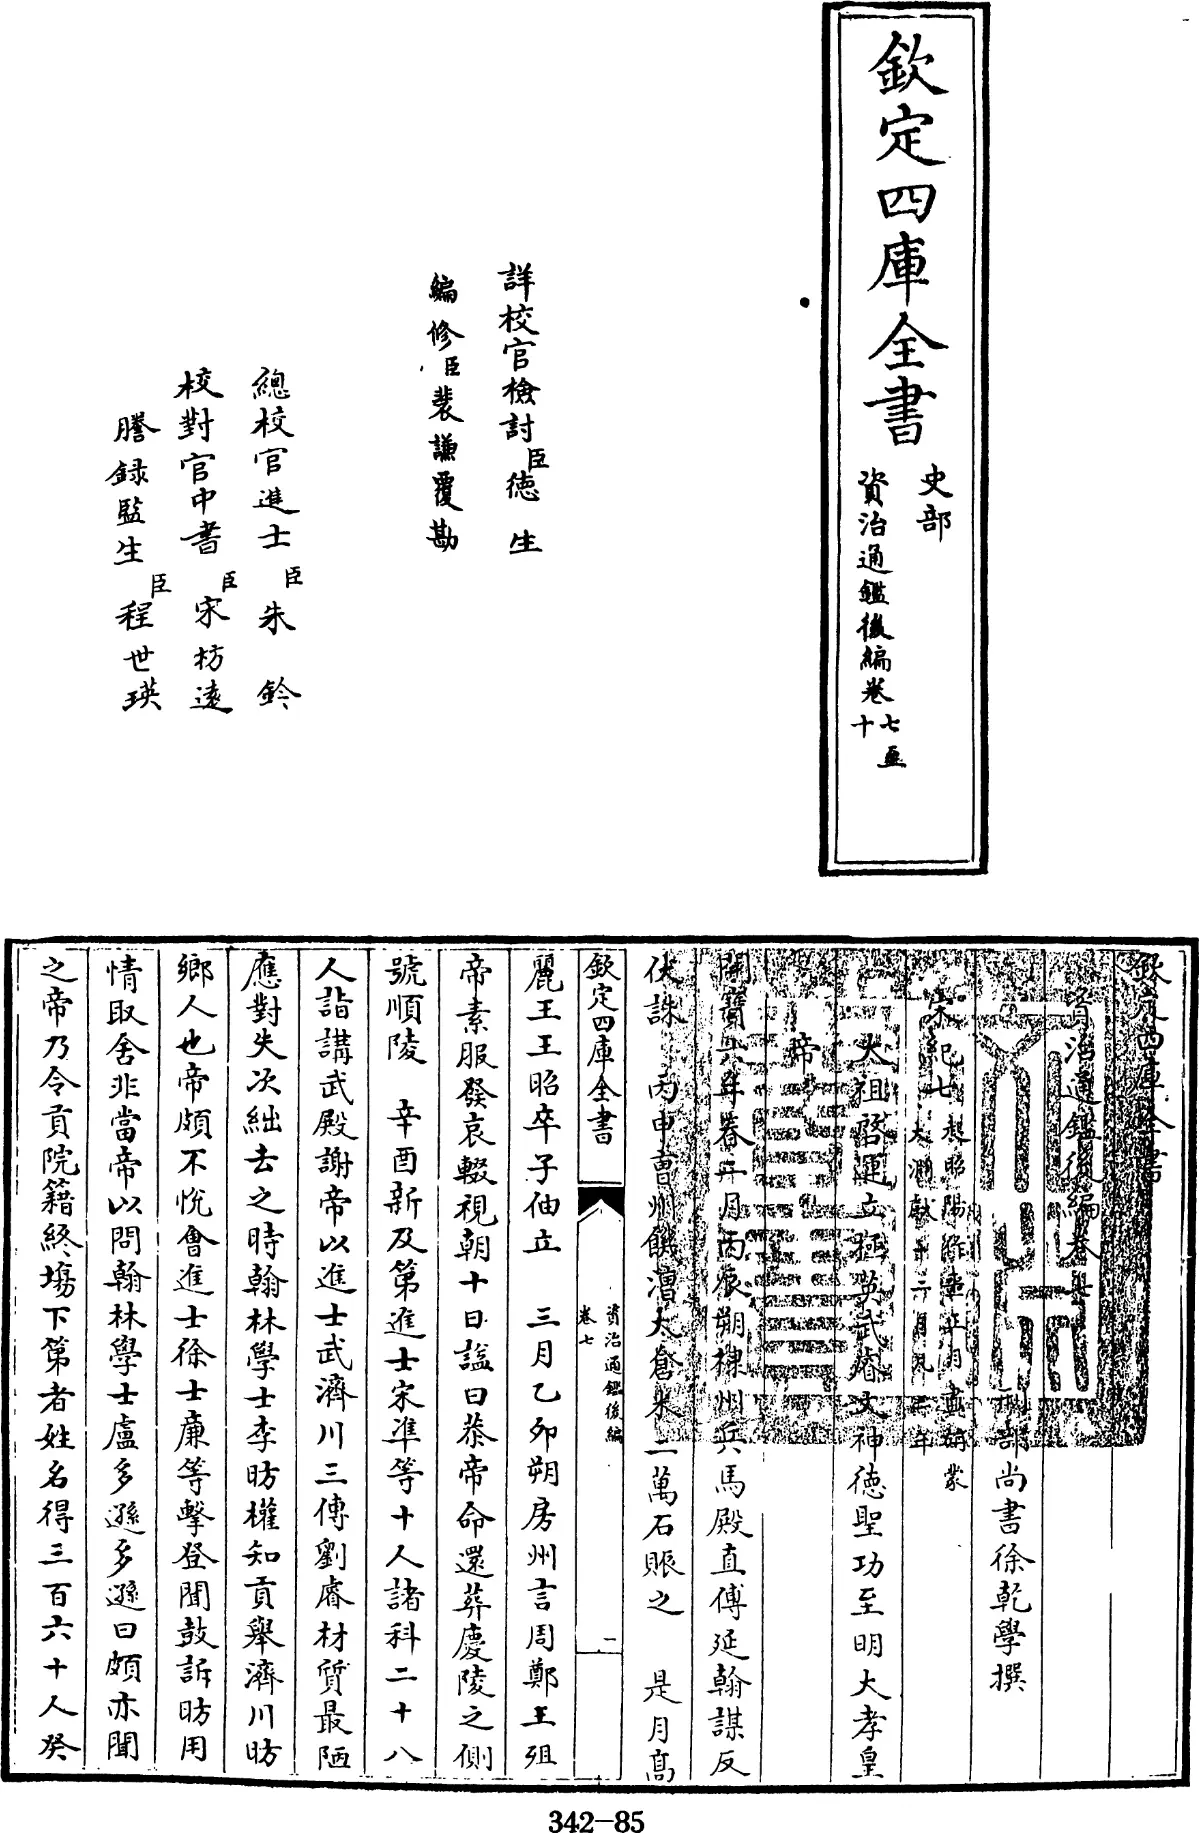 欽定四庫全書
史部
資治通鑑後編卷七至
十
詳校官檢討臣德生
編修臣裴謙覆勘
總校官進士臣朱鈐
校對官中書臣宋枋遠
謄錄監生臣程世瑛
欽定四庫全書
資治通鑑後編卷七
刑部尚書徐乾學撰
宋紀七起昭陽作噩正月盡閼蒙
大淵獻十二月凡三年
太祖啓運立極英武睿文神德聖功至明大孝皇
帝
開寶六年春正月丙辰朔棣州兵馬殿直傅延翰謀反
伏誅 丙申曹州饑漕太倉米二萬石賑之 是月高
欽定四庫全書
資治通鑑後編
卷七
二
麗王王昭卒子伷立 三月乙卯朔房州言周鄭王殂
帝素服發哀輟視朝十日諡曰恭帝命還葬慶陵之側
號順陵 辛酉新及第進士宋準等十人諸科二十八
人詣講武殿謝帝以進士武濟川三傳劉睿材質最陋
應對失次絀去之時翰林學士李昉權知貢舉濟川昉
鄉人也帝頗不悅會進士徐士廉等擊登聞鼓訴昉用
情取舍非當帝以問翰林學士盧多遜多遜曰頗亦聞
之帝乃令貢院籍終場下第者姓名得三百六十人癸
342-85